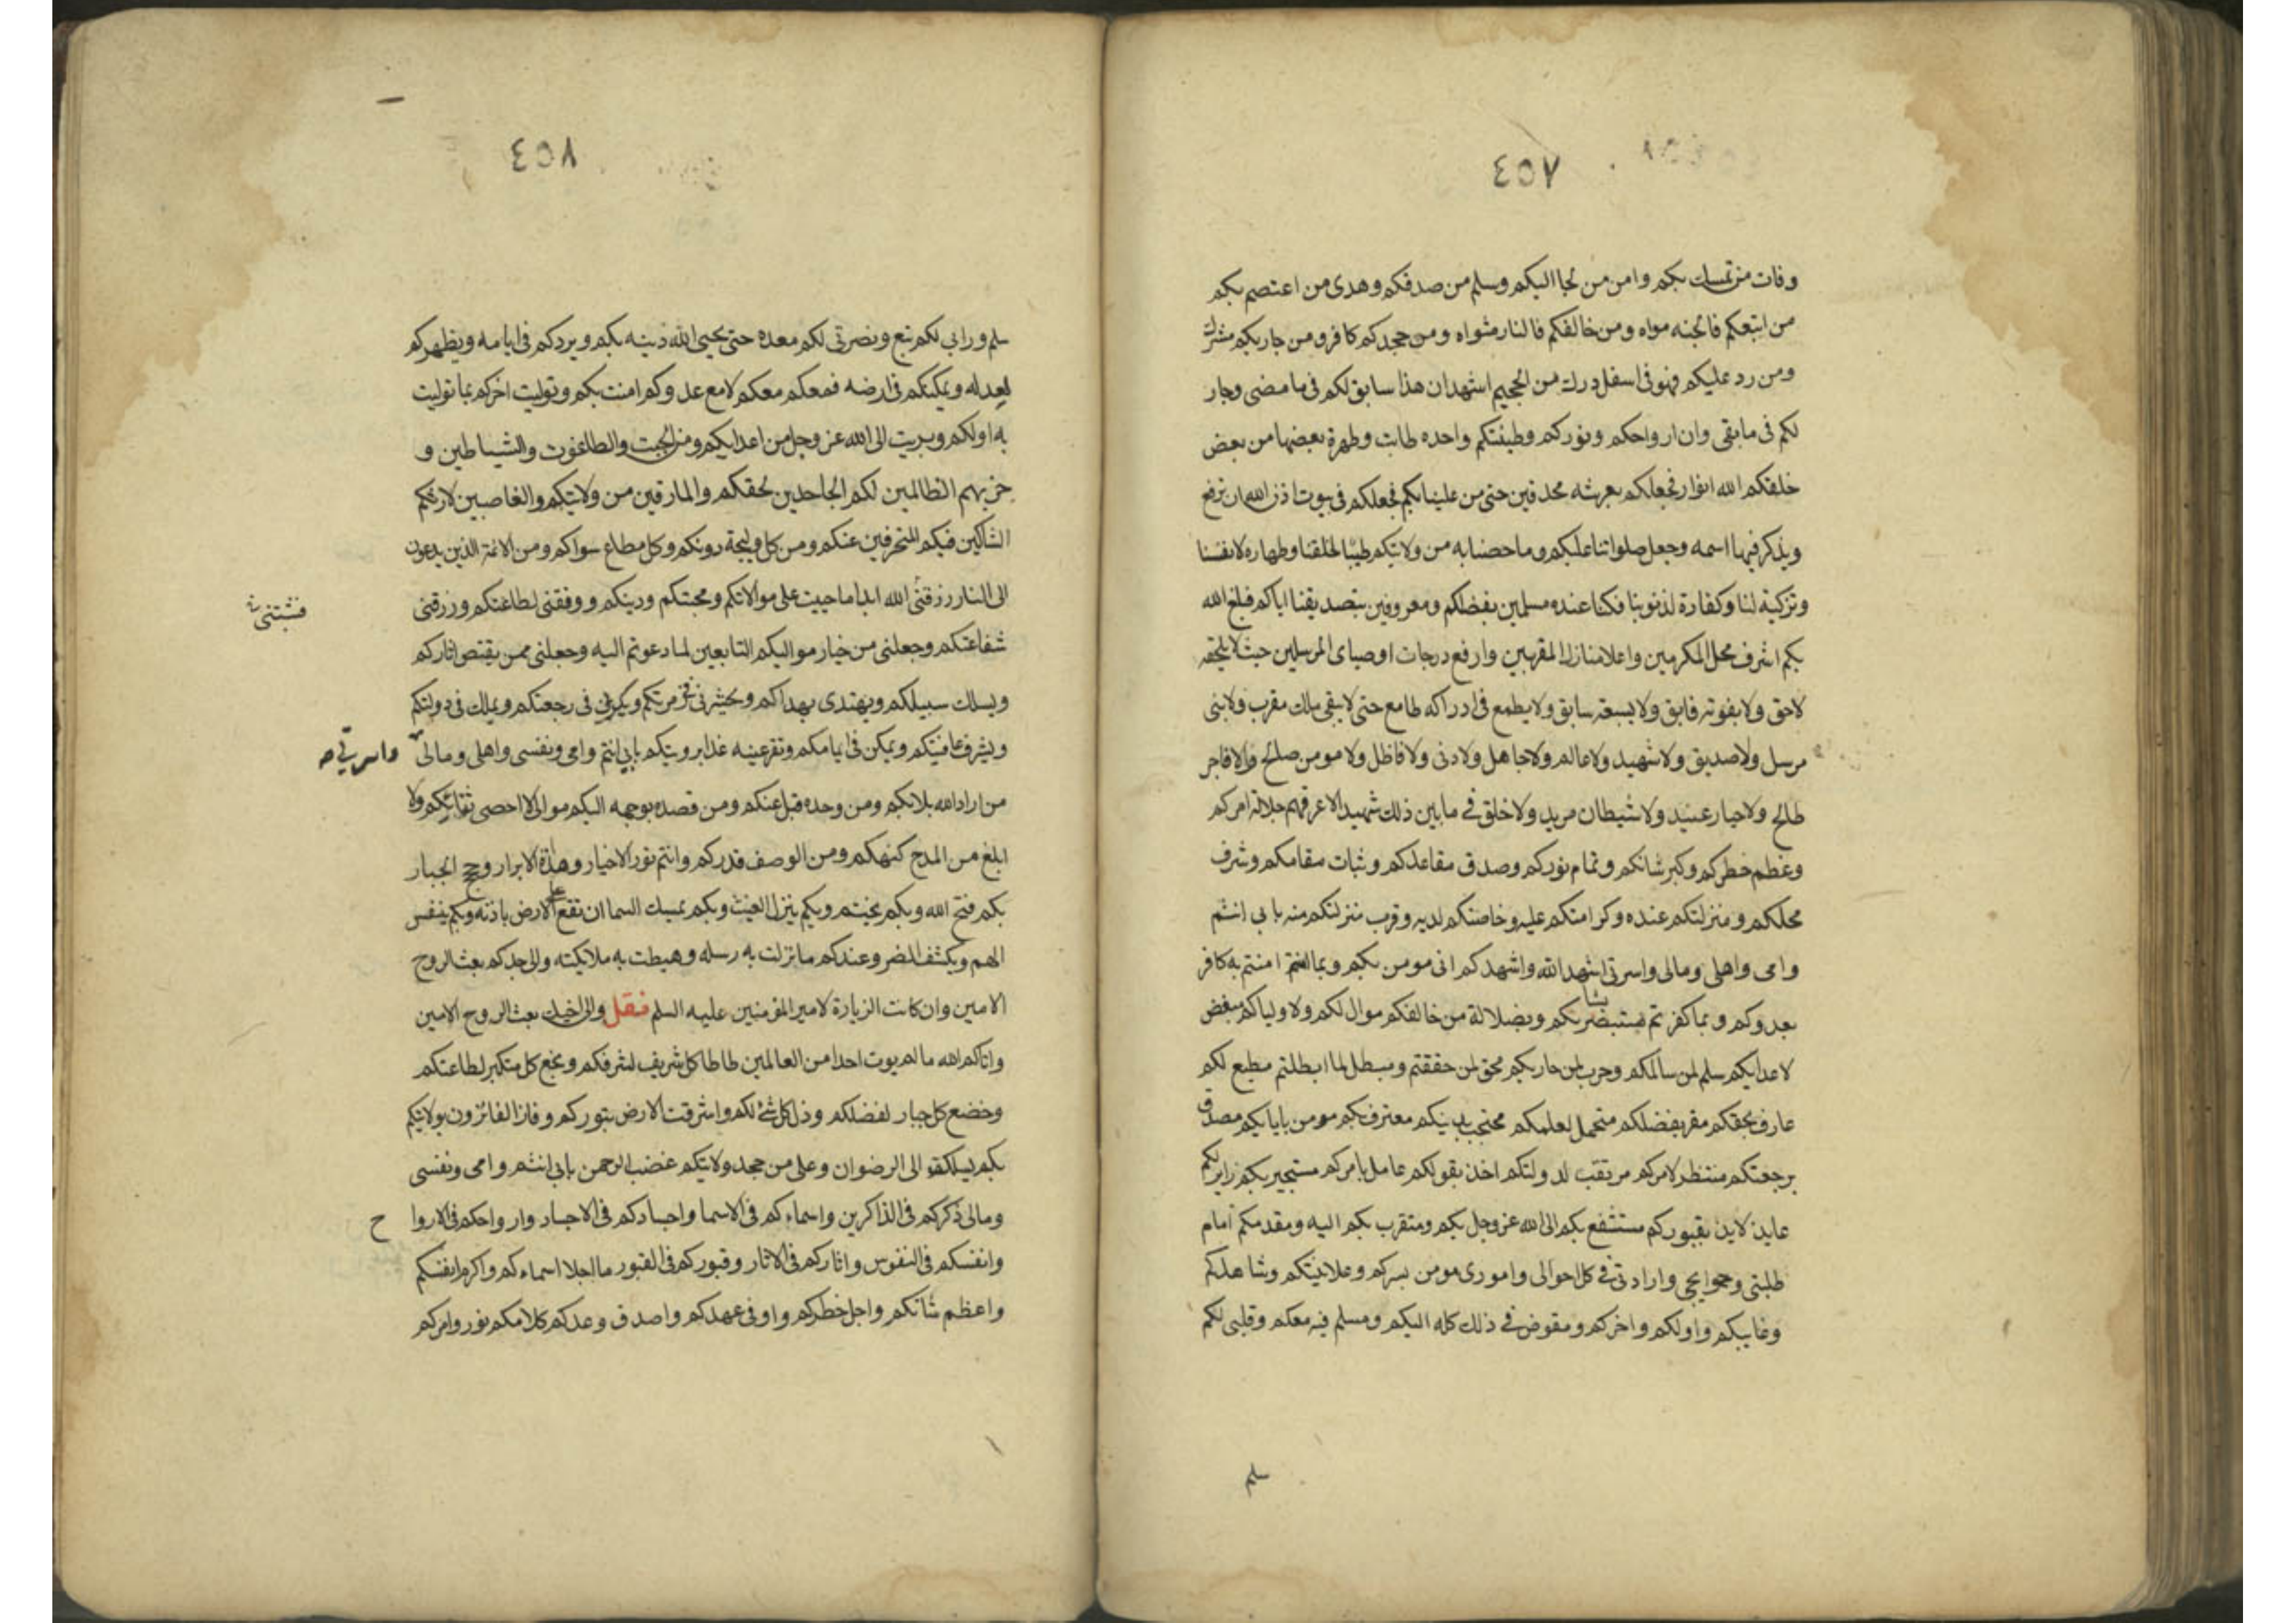 ٤٥٧
وفات من تمسك بكم وامن من لجا اليكم وسلم من صدقكم وهدى من اعتصم بكم
من اتبعكم فالجنه مواه ومن خالفكم فالنار مثواه ومن جحدكم كافر ومن حاربكم مشرك
ومن رد عليكم فهو فى اسفل درك من الجحيم اشهد ان هذا سابق لكم فى ما مضى وجار
لكم فى ما بقى وان ارواحكم ونوركم وطينتكم واحده طابت وطهرة بعضها من بعض
خلقكم الله انوار فجعلكم بعرشه محدقين حتى من علينا بكم فجعلكم فى بيوت اذن الله ان ترفع
ويذكر فيها اسمه وجعل صلواتنا عليكم وما خصنا به من ولايتكم طيبا لخلقنا وطهاره لانفسنا
وتزكية لنا وكفارة لذنوبنا فكنا عنده مسلمين بفضلكم ومعروفين بتصديقنا اياكم فبلغ الله
بكم اشرف محل المكرمين واعلا منازل المقربين وارفع درجات اوصياى المرسلين حيث لا يلحقه
لاحق ولا يفوته فايق ولا يسبقه سابق ولا يطمع فى ادراكه طامع حتى لا يبقى ملك مقرب ولا نبى
مرسل ولا صديق ولا شهيد ولا عالم ولا جاهل ولا دنى ولا فاظل ولا مومن صلح والا فاجر
طالح ولا جبار عنيد ولا شيطان مريد ولا خلق فى ما بين ذلك شهيد الا عرفهم جلالة امركم
وعظم خطركم وكبر شانكم وتمام نوركم وصدق مقاعدكم وثبات مقامكم وشرف
محلكم ومنزلتكم عنده وكرامتكم عليه وخاصتكم لديه وقرب منزلتكم منه بابى انتم
وامى واهلى ومالى واسرتى اشهد الله واشهدكم انى مومن بكم وبما امنتم به كافر
بعدوكم وبما كفرتم به مستبصر بشانكم وبضلالة من خالفكم موال لكم ولاولياكم مبغض
لاعدايكم سلم لمن سالمكم وحرب لمن حاربكم محق لمن حققتم ومبطل لما ابطلتم مطيع لكم
عارف بحقكم مقر بفضلكم متحمل لعلمكم محتجب بدينكم معترف بكم مومن باياكم مصدق
برجعتكم منتظر لامركم مرتقب لدولتكم اخذ بقولكم عامل بامركم مستجير بكم زاير لكم
عايذ لايذ بقبوركم مستشفع بكم الى الله عز وجل بكم ومتقرب بكم اليه ومقدمكم امام
طلبتى وحوايجى وارادتى فى كل احوالى وامورى مومن بسركم وعلانيتكم وشاهدكم
وغايبكم واولكم واخركم ومفوض فى ذلك كله اليكم ومسلم فيه معكم وقلبى لكم
سلم
٤٥٨
سلم ورابى لكم تبع ونصرتى لكم معده حتى يحيى الله دينه بكم ويردكم فى ايامه ويظهركم
لعدله ويمكنكم فى ارضه فمعكم معكم لا مع عدوكم امنت بكم وتوليت اخركم بما توليت
به اولكم وبريت الى الله عز وجل من اعدايكم ومن الجبت والطاغوت والشياطين و
حزبهم الظالمين لكم الجاحدين لحقكم والمارقين من ولايتكم والغاصبين لارثكم
الشاكين فيكم المنحرفين عنكم ومن كل وليجة دونكم وكل مطاع سواكم ومن الائمة الذين يدعون
الى النار رزقنى الله ابدا ما حييت على موالاتكم ومحبتكم ودينكم ووفقنى لطاعتكم ورزقنى
فثبتنى
شفاعتكم وجعلنى من خيار مواليكم التابعين لما دعوتم اليه وجعلنى ممن يقتص اثاركم
ويسلك سبيلكم ويهتدى بهداكم ويحشر فى زمرتكم ويكر فى رجعتكم ويملك فى دولتكم
ويشرف عافيتكم ويمكن فى ايامكم وتقر عينه غدا برويتكم بابى انتم وامى ونفسى واهلى ومالى
واسرتى صح
من اراد الله بدا بكم ومن وحده قبل عنكم ومن قصده بوجهه اليكم موالى لا احصى ثنائكم ولا
ابلغ من المدح كنهكم ومن الوصف قدركم وانتم نور الاخيار وهداة الابرار وحجج الجبار
بكم فتح الله وبكم يختم وبكم ينزل الغيث وبكم يمسك السما ان تقع على الارض باذنه وبكم ينفس
الهم ويكشف الضر وعندكم ما نزلت به رسله وهبطت به ملايكته والى جدكم بعث الروح
الامين وان كانت الزيارة لامير المؤمنين عليه السلم فقل والى اخيك بعث الروح الامين
واتاكم الله ما لم يوت احدا من العالمين طاطا كل شريف لشرفكم وبخع كل متكبر لطاعتكم
وخضع كل جبار لفضلكم وذل كل شئ لكم واشرقت الارض بنوركم وفاز الفائزون بولايتكم
بكم يسلك الى الرضوان وعلى من جحد ولايتكم غضب الرحمن بابى انتم وامى ونفسى
ومالى ذكركم فى الذاكرين واسماءكم فى الاسما واجسادكم فى الاجساد وارواحكم فى الاروا
ح
وانفسكم فى النفوس واثاركم فى الاثار وقبوركم فى القبور ما احلا اسماءكم واكرم انفسكم
واعظم شانكم واجل خطركم واوفى عهدكم واصدق وعدكم كلامكم نور وامركم